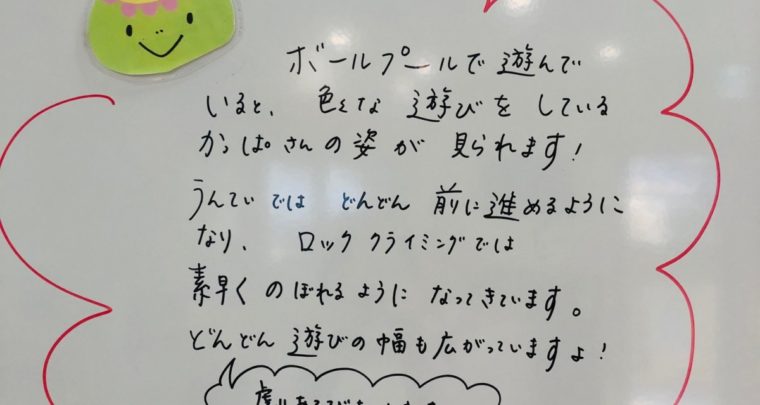 ボールプールで遊んで
いると、色々な遊びをしている
かっぱさんの姿が見られます!
うんていではどんどん前に進めるように
なり、ロッククライミングでは
素早くのぼれるようになってきています。
どんどん遊びの幅も広がっていますよ!